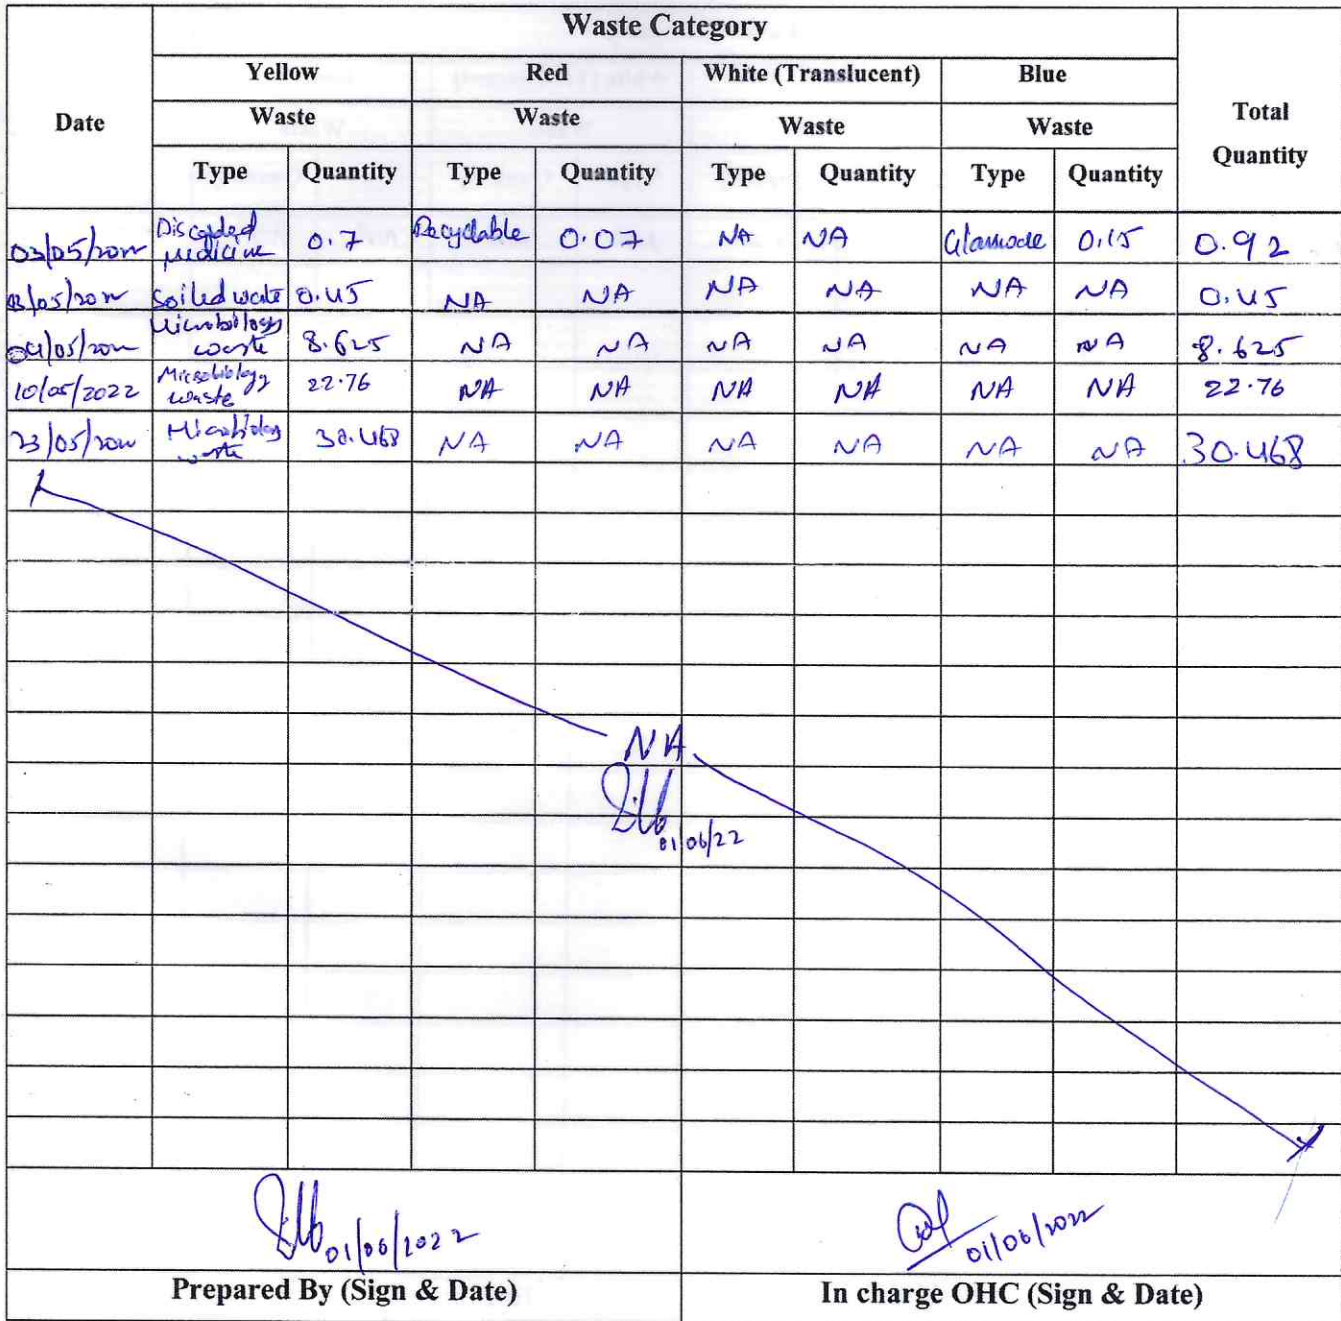 Waste Category
Yellow Red White (Translucent) Blue
Date Waste Waste Waste Waste Total Quantity
Type Quantity Type Quantity Type Quantity Type Quantity
03/05/2022 Discarded medicine 0.7 Recyclable 0.07 NA NA 0.15 0.92
03/05/2022 Soiled waste 0.45 NA NA NA NA NA NA 0.45
04/05/2022 Microbiology waste 8.625 NA NA NA NA NA NA 8.625
10/05/2022 Microbiology waste 22.76 NA NA NA NA NA NA 22.76
23/05/2022 Microbiology waste 30.468 NA NA NA NA NA NA 30.468
NA
01/06/22
01/06/2022 01/06/2022
Prepared By (Sign & Date) In charge OHC (Sign & Date)